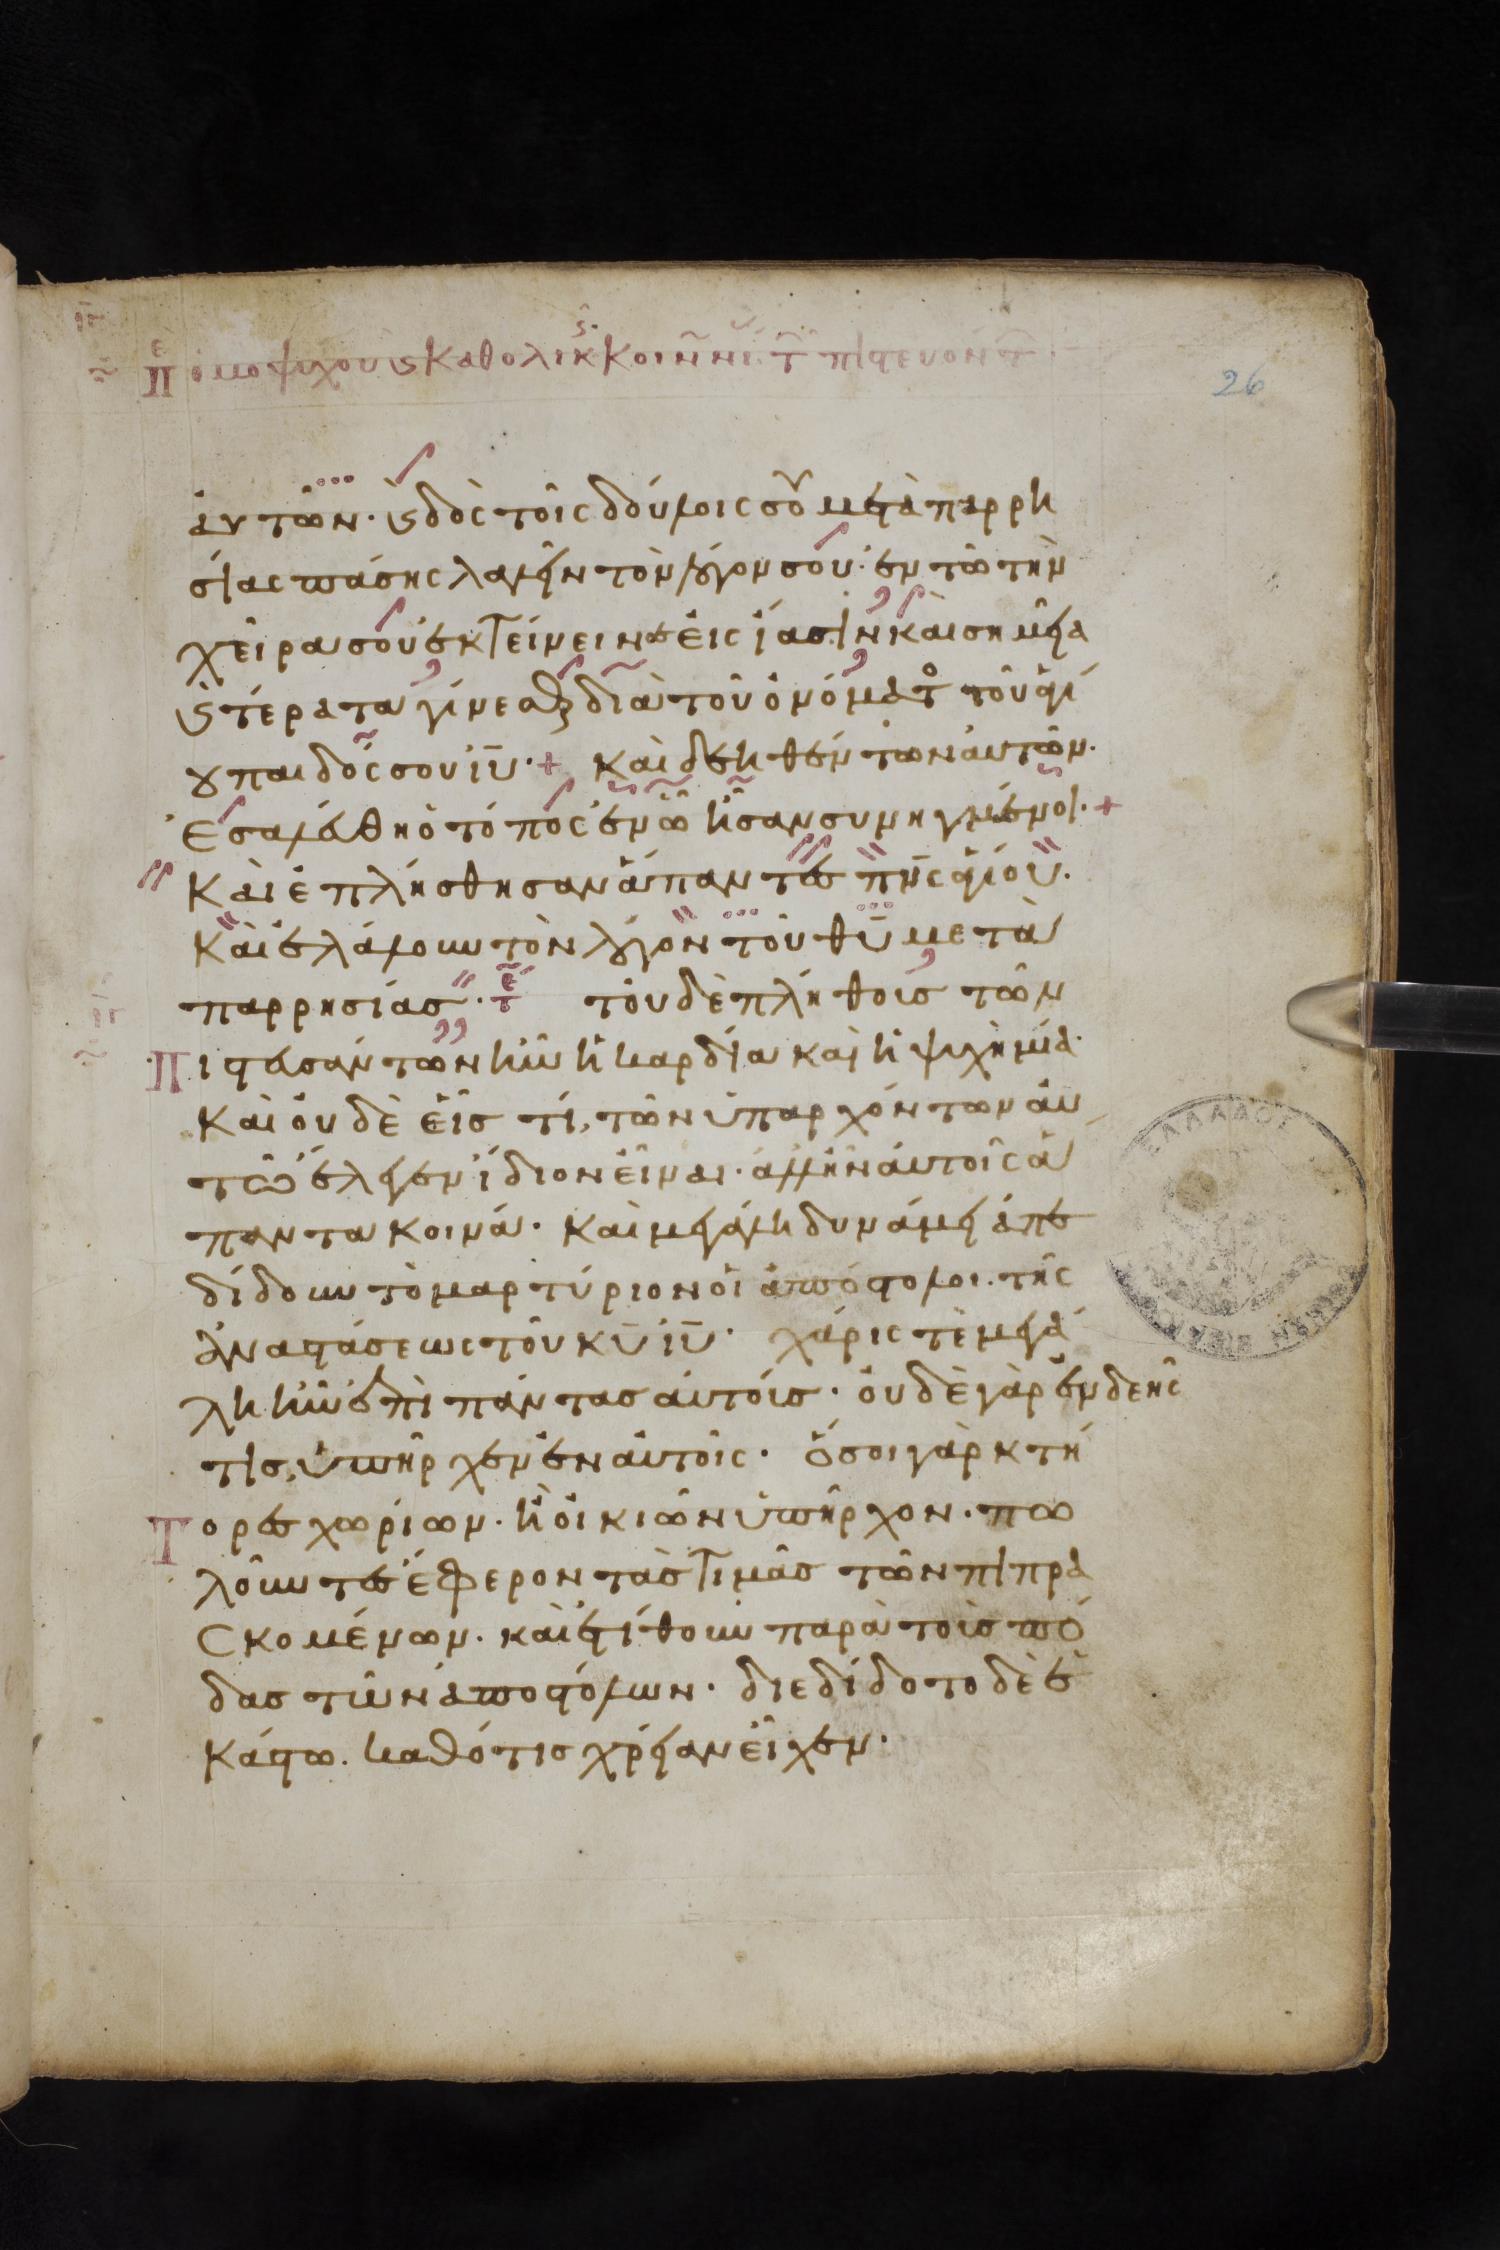 Πε ὁμοψύχου ϗ καθολικ κοινωνι τ πιστευόντ
26
ἀυτῶν· ϗ δὸς τοῖς δούλοις σοῦ μετὰ παρρη
σίας πάσης λαλεῖν τὸν λόγον σου· ἐν τῶ τὴν
χεῖρα σοῦ ἐκτείνειν σε εἰς ἴασιν καὶ σημεῖα
ϗ τέρατα γίνεσθαι διὰ τοῦ ὀνόματος τοῦ ἁγί
ου παιδός σου ἰυ·+ Καὶ δεηθέντων ἀυτῶν·
Ἐσαλεύθη ὁ τόπος ἐν ὧ ἦσαν συνηγμένοι·+
Καὶ ἐπλήσθησαν ἅπαντες πνς ἁγίου·
Καὶ ἐλάλουν τὸν λόγον τοῦ θυ μετὰ
παρρησίας· τε τοῦ δὲ πλήθους τῶν
Πιστευσάντων ἦν ἡ καρδία καὶ ἡ ψυχὴ μία·
Καὶ οὐδὲ εἷς τί, τῶν ὑπαρχόντων ἀυ
τῶ ἔλεγεν ἴδιον εἶναι· ἀλλ ἦν ἀυτοῖς ἅ
παντα κοινά· καὶ μεγάλη δυνάμει ἀπε
δίδουν τὸ μαρτύριον οἱ ἀπόστολοι· τῆς
ἀναστάσεως τοῦ κυ ἰυ· χάρις τὲ μεγά
λη ἦν ἐπὶ πάντας ἀυτούς· οὐδὲ γὰρ ἐνδεής
τις, ὑπῆρχεν ἐν ἀυτοῖς· ὅσοι γὰρ κτή
Τορες χωρίων· ἢ οἰκιῶν ὑπῆρχον· πω
λοῦντες ἔφερον τὰς τιμὰς τῶν πιπρα
Σκομένων· καὶ ἐτίθουν παρὰ τοὺς πό
δας τῶν ἀποστόλων· διεδίδοτο δὲ ἑ
Κάστω· καθότις χρείαν εἶχεν·